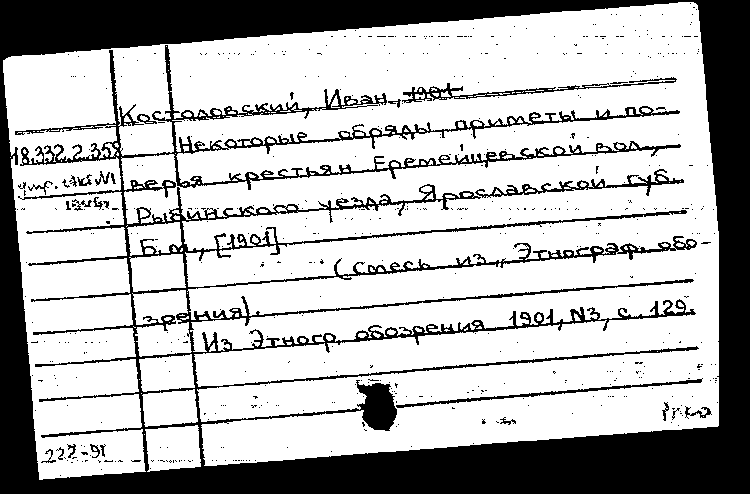 Костоловский, Иван, 1901
18.332.2.358 Некоторые обряды, приметы и по-
верья крестьян Еремейцевской вол.,
Рыбинского уезда, Ярославской губ.
Б.м., [1901].
(Смесь из „Этнограф. обо-
зрения).
Из Этногр. обозрения 1901, N3, с. 129.
222-91